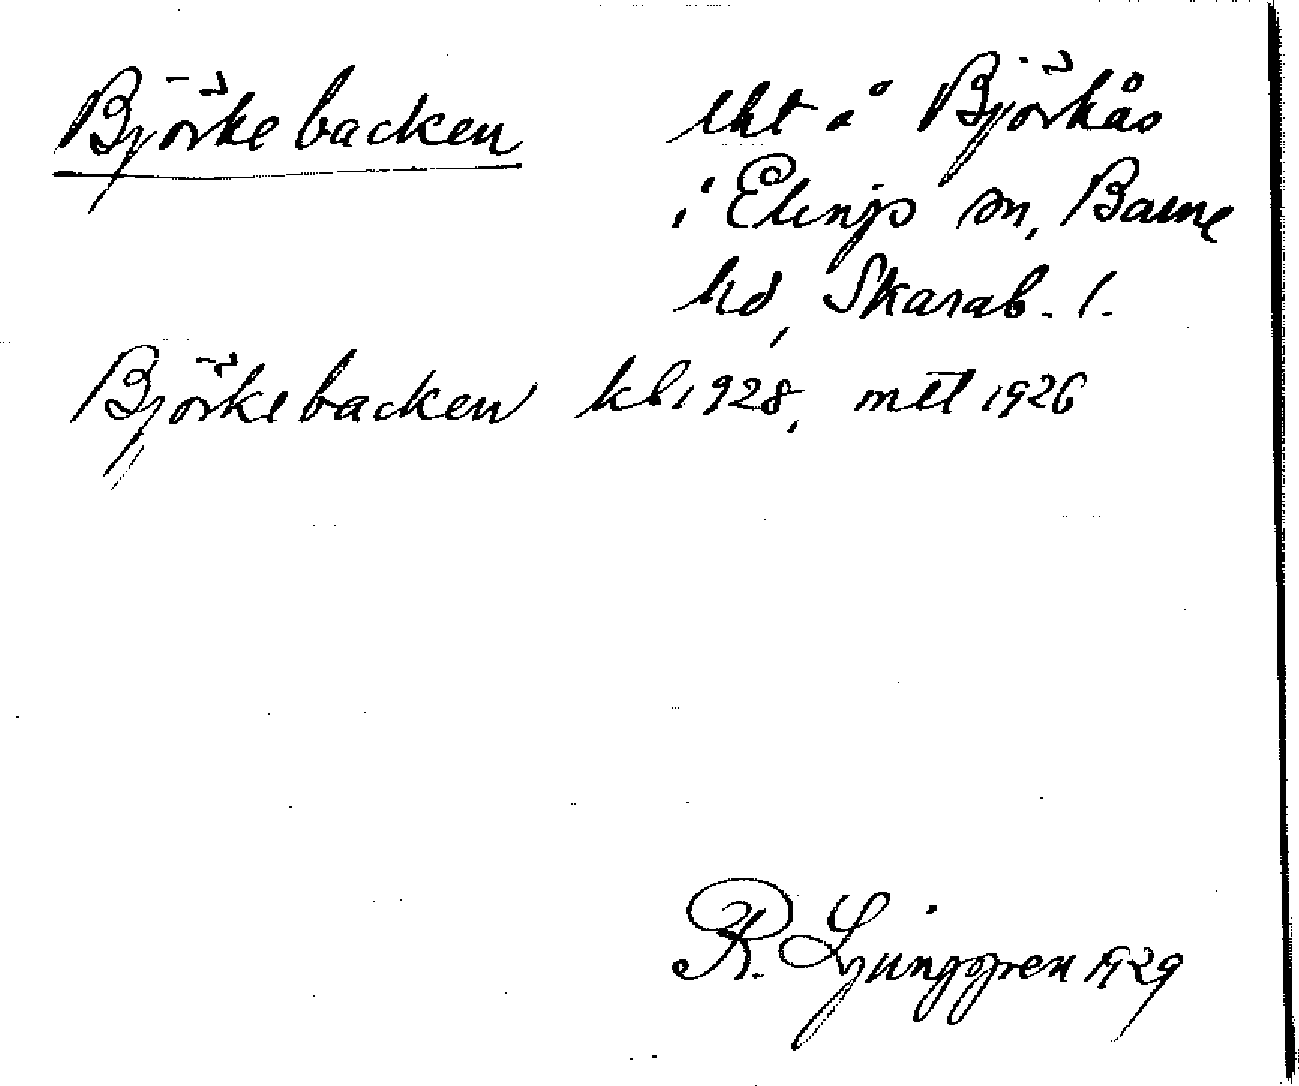 Björkebacken lht å Björkås
i Elings sn, Barne
hd, Skarab. l.
Björkebacken kb 1928, mtl 1926
R. Ljunggren 1929